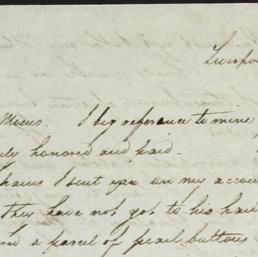 Liverpo
I beg reference to mine
ly honored and paid.
I sent you on my accou
they have not got to his ha
ed a parcel of pearl buttons